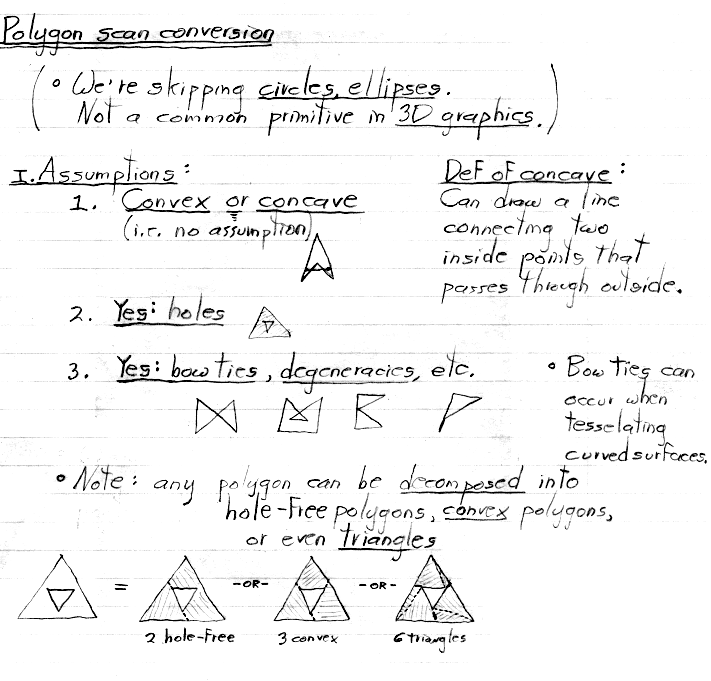 Polygon scan conversion
(• We're skipping circles, ellipses.
Not a common primitive in 3D graphics.)
I. Assumptions:
1. Convex or concave
(i.e. no assumption)
Def of concave:
Can draw a line
connecting two
inside points that
passes through outside.
2. Yes: holes
3. Yes: bow ties, degeneracies, etc.
• Bow Ties can
occur when
tesselating
curved surfaces.
• Note: any polygon can be decomposed into
hole-free polygons, convex polygons,
or even triangles
= -OR- -OR-
2 hole-free 3 convex 6 triangles